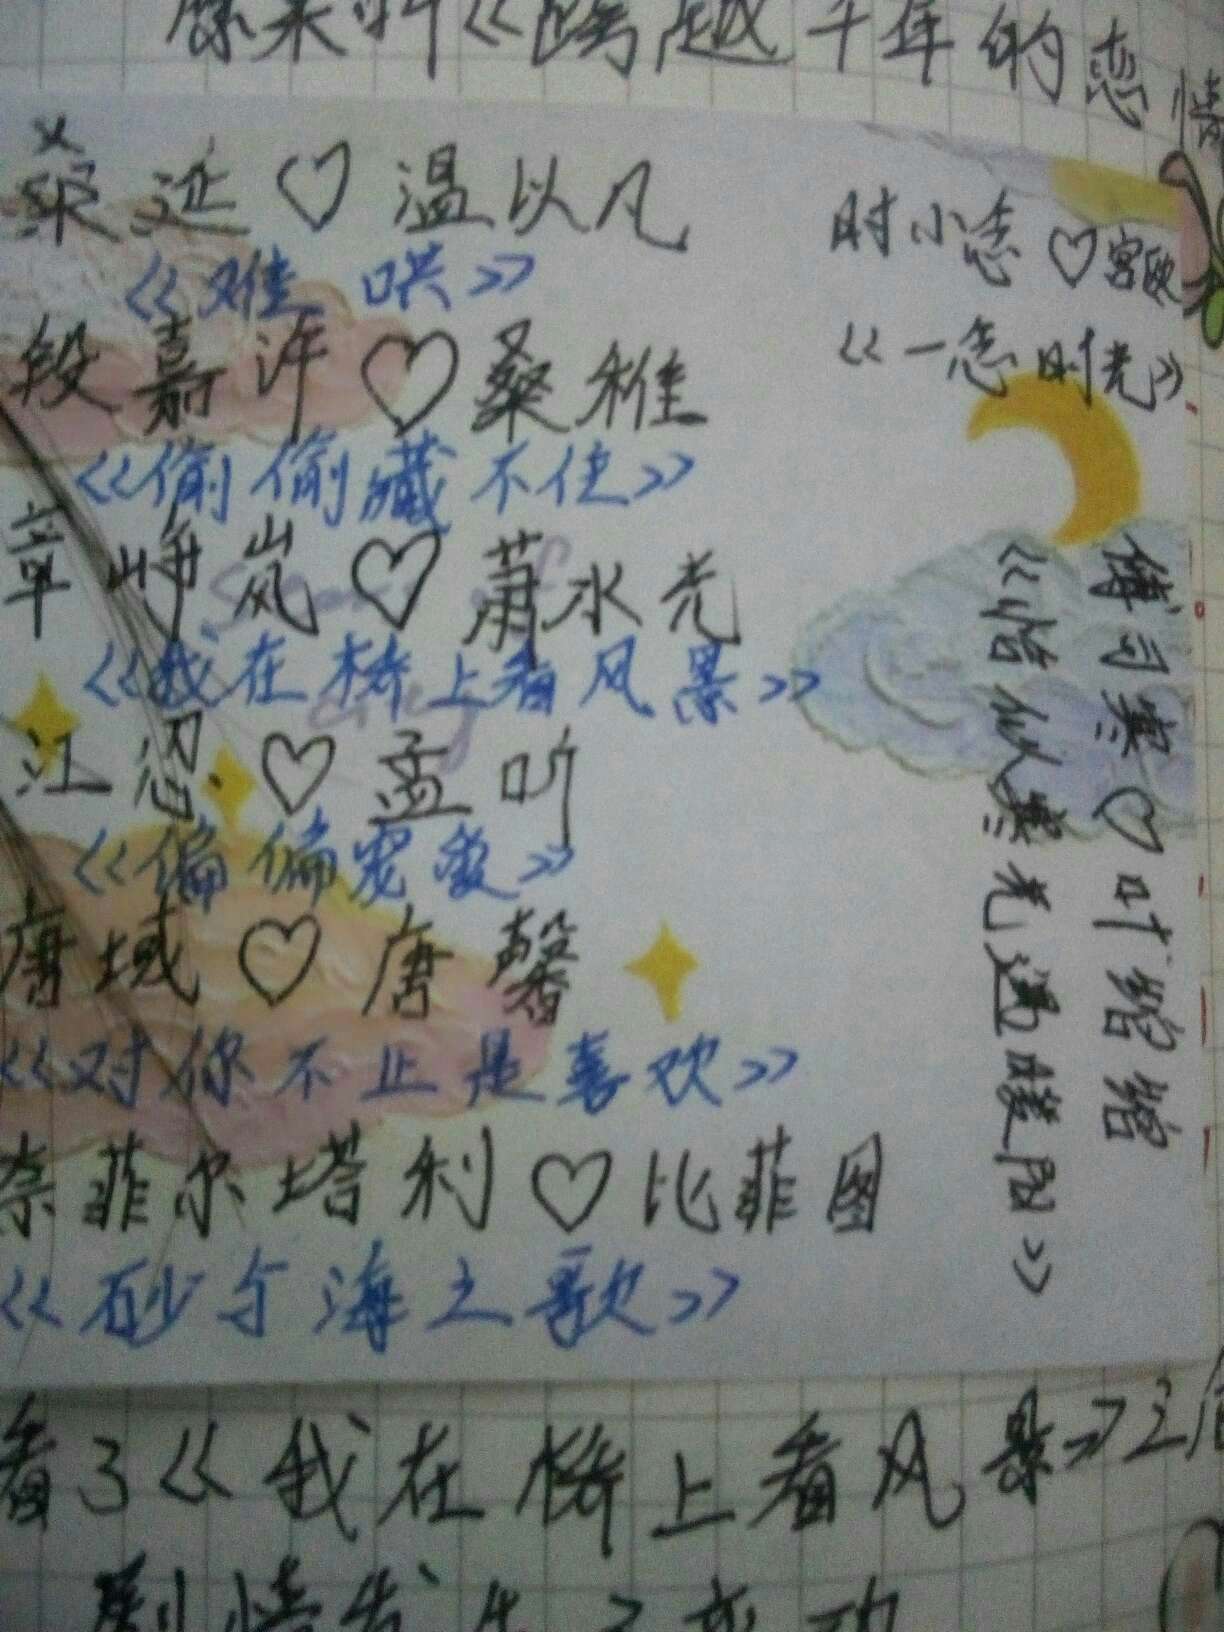 原来叫《跨越千年的恋情
桑延♡温以凡
《难哄》
段嘉许♡桑稚
《偷偷藏不住》
章峥岚♡萧水光
《我在桥上看风景》
江忍♡孟听
《偏偏宠爱》
唐域♡唐馨
《对你不止是喜欢》
奈菲尔塔利♡比菲图
《砂与海之歌》
时小念♡宫欧
《一念时光》
傅司寒♡叶绾绾
《恰似寒光遇骄阳》
看了《我在桥上看风景》
剧情发生了变动